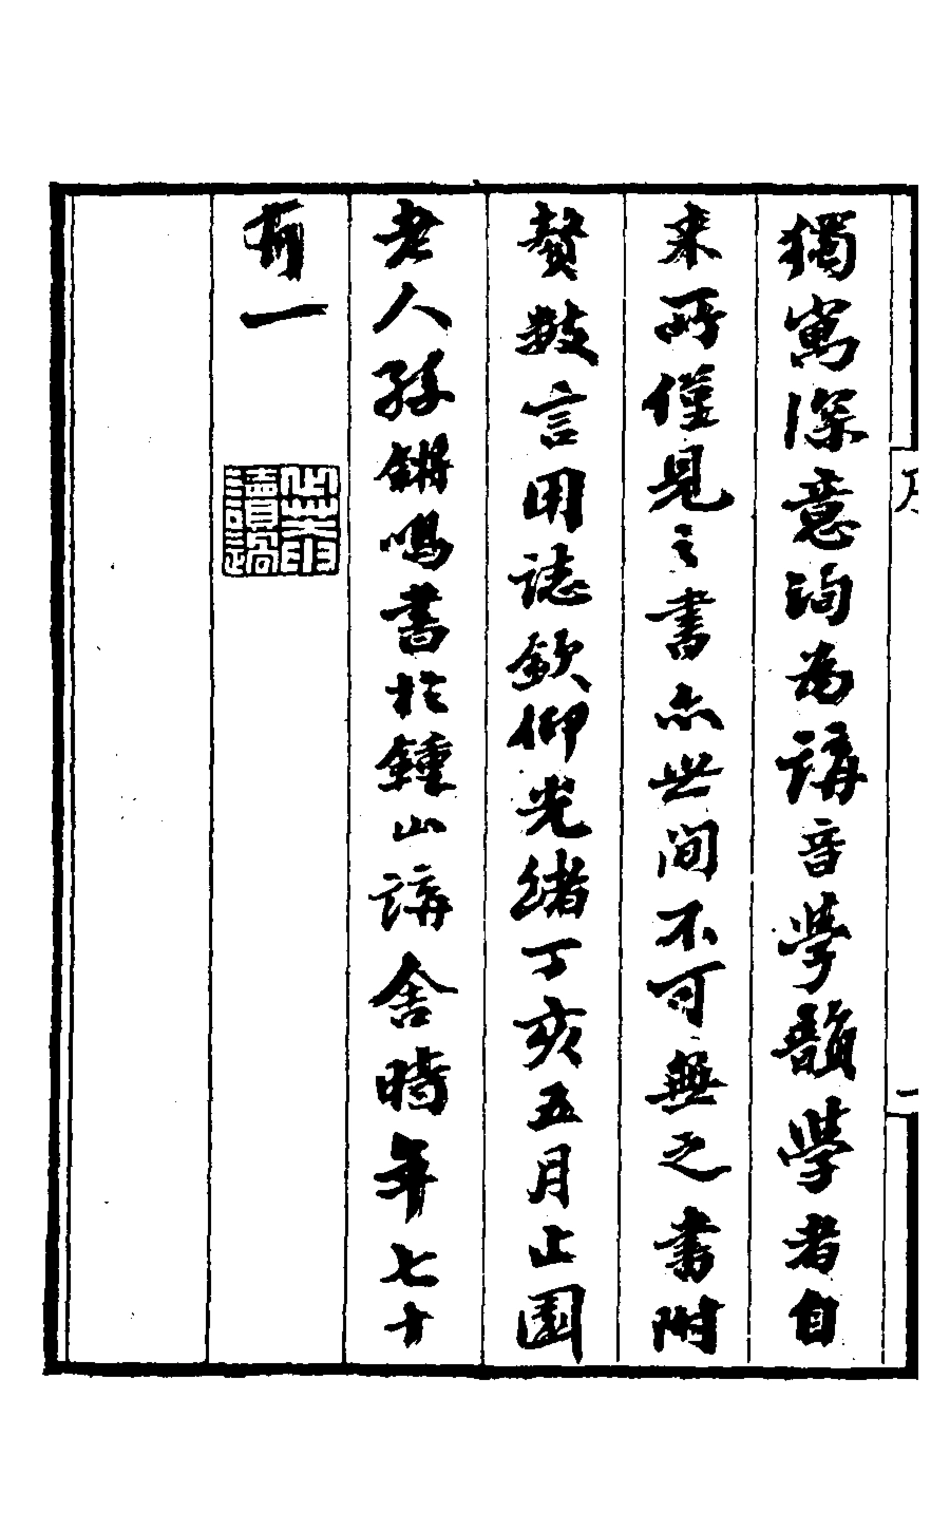 獨寓深意洵為講音學韻學者自
来所僅見之書亦世间不可無之書附
贅数言用誌欽仰光緒丁亥五月止園
老人孫鏘鳴書於鍾山講舍時年七十
有一